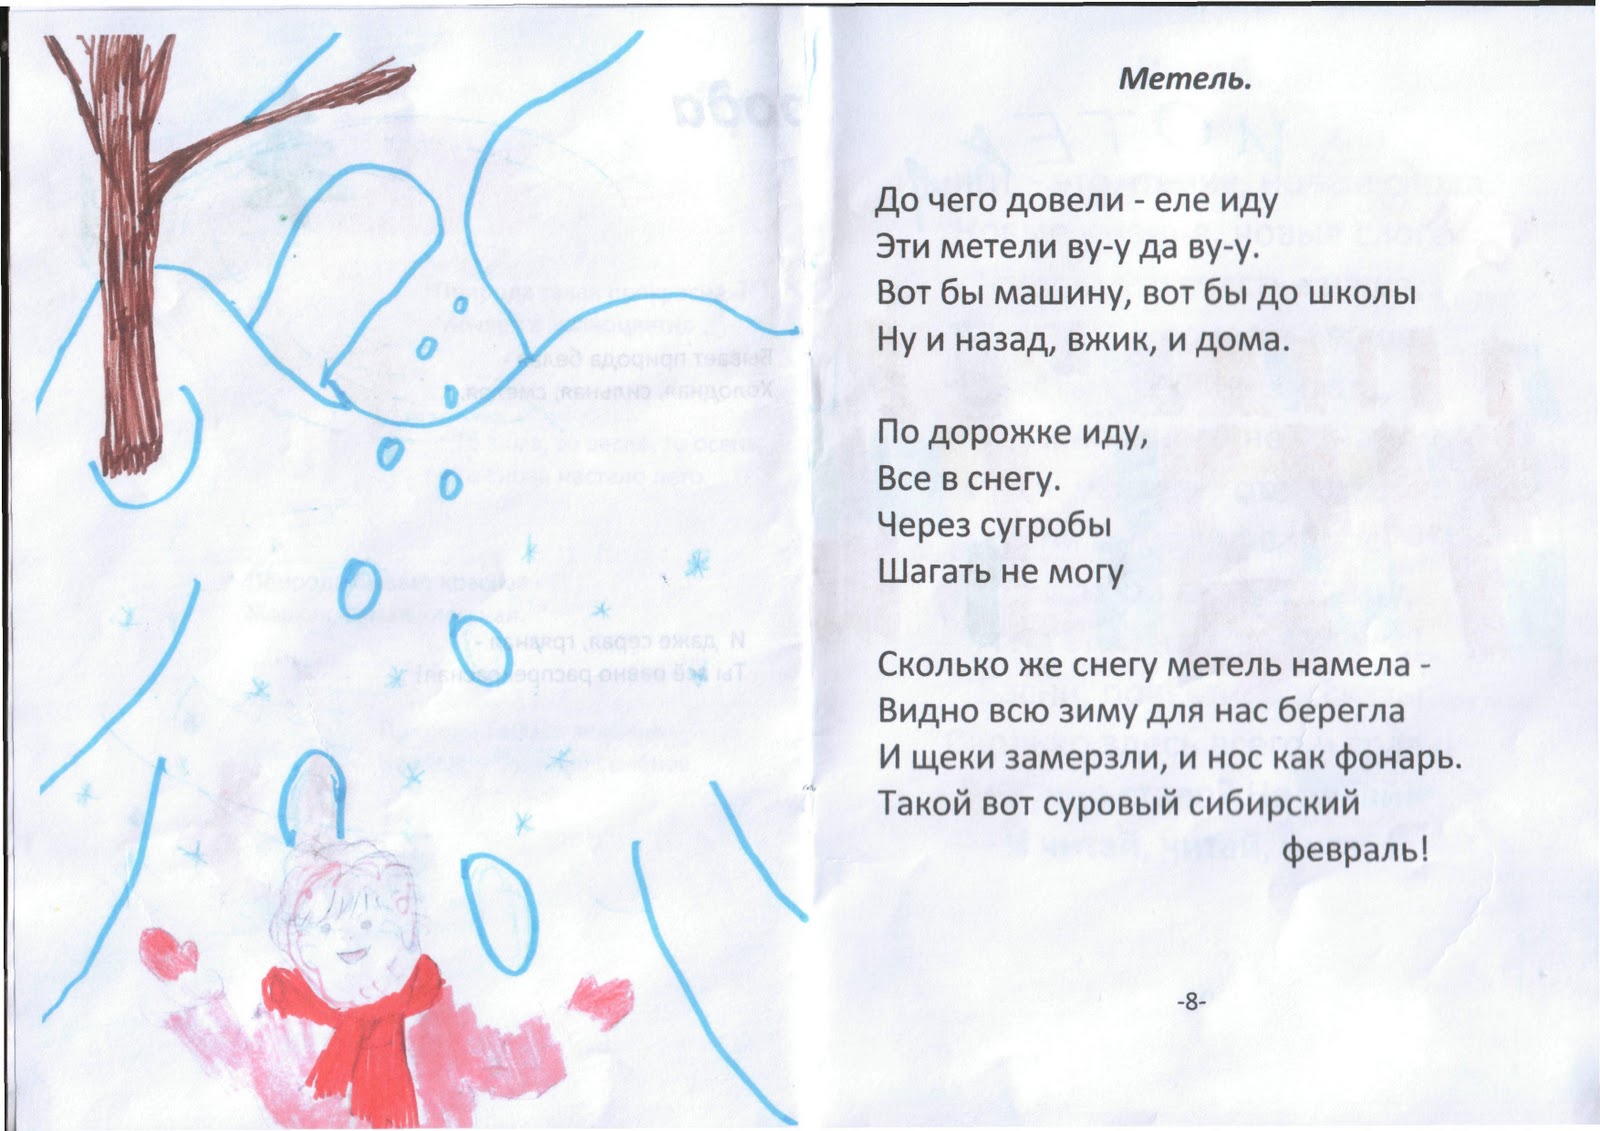 Метель.
До чего довели - еле иду
Эти метели ву-у да ву-у.
Вот бы машину, вот бы до школы
Ну и назад, вжик, и дома.
По дорожке иду,
Все в снегу.
Через сугробы
Шагать не могу
Сколько же снегу метель намела -
Видно всю зиму для нас берегла
И щеки замерзли, и нос как фонарь.
Такой вот суровый сибирский
февраль!
-8-